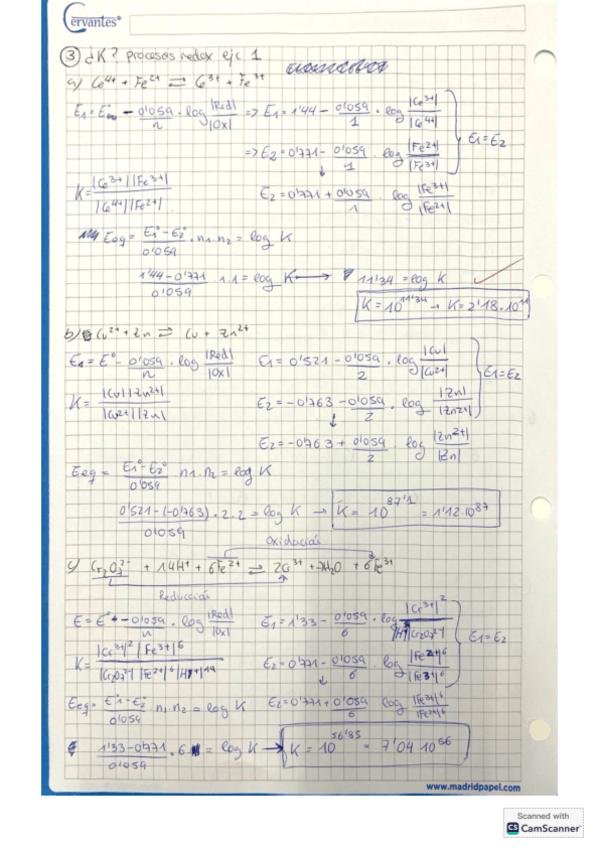 Cervantes®
③ ¿K? procesos redox ejc 1
a) Ce⁴⁺ + Fe²⁺ ⇌ Ce³⁺ + Fe³⁺
E₁ = E° - 0'059/n · log |Red|/|Ox| => E₁ = 1'44 - 0'059/1 · log |Ce³⁺|/|Ce⁴⁺|
=> E₂ = 0'771 - 0'059/1 · log |Fe²⁺|/|Fe³⁺| } E₁ = E₂
K = |Ce³⁺||Fe³⁺|/|Ce⁴⁺||Fe²⁺| ↓ E₂ = 0'771 + 0'059/1 · log |Fe³⁺|/|Fe²⁺|
Eeq = E₁° - E₂°/0'059 · n₁ · n₂ = log K
1'44 - 0'771/0'059 · 1 · 1 = log K → 11'34 = log K
K = 10^11'34 → K = 2'18 · 10¹¹
b) Cu²⁺ + Zn ⇌ Cu + Zn²⁺
E₁ = E° - 0'059/n · log |Red|/|Ox| E₁ = 0'521 - 0'059/2 · log |Cu|/|Cu²⁺|
K = |Cu||Zn²⁺|/|Cu²⁺||Zn| E₂ = -0'763 - 0'059/2 · log |Zn|/|Zn²⁺| } E₁ = E₂
↓ E₂ = -0'763 + 0'059/2 · log |Zn²⁺|/|Zn|
Eeq = E₁° - E₂°/0'059 · n₁ · n₂ = log K
0'521 - (-0'763)/0'059 · 2 · 2 = log K → K = 10^87'1 = 1'12 · 10⁸⁷
Oxidación
c) Cr₂O₇²⁻ + 14H⁺ + 6Fe²⁺ ⇌ 2Cr³⁺ + 7H₂O + 6Fe³⁺
Reducción
E = E° - 0'059/n · log |Red|/|Ox| E₁ = 1'33 - 0'059/6 · log |Cr³⁺|²/|H⁺||Cr₂O₇²⁻|
K = |Cr³⁺|²|Fe³⁺|⁶/|Cr₂O₇²⁻||Fe²⁺|⁶|H⁺|¹⁴ E₂ = 0'771 - 0'059/6 · log |Fe²⁺|⁶/|Fe³⁺|⁶ } E₁ = E₂
Eeq = E°₁ - E₂°/0'059 · n₁ · n₂ = log K ↓ E₂ = 0'771 + 0'059/6 log |Fe³⁺|⁶/|Fe²⁺|⁶
1'33 - 0'771/0'059 · 6 = log K → K = 10^56'85 = 7'04 10⁵⁶
www.madridpapel.com
Scanned with
CS CamScanner